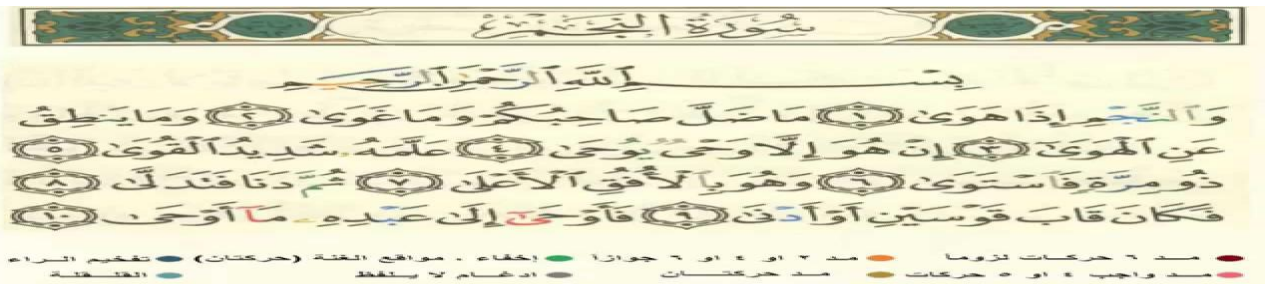 سُورَةُ النَّجْمِ
بِسْمِ ٱللَّهِ ٱلرَّحْمَٰنِ ٱلرَّحِيمِ
وَٱلنَّجْمِ إِذَا هَوَىٰ ﴿١﴾ مَا ضَلَّ صَاحِبُكُمْ وَمَا غَوَىٰ ﴿٢﴾ وَمَا يَنطِقُ
عَنِ ٱلْهَوَىٰٓ ﴿٣﴾ إِنْ هُوَ إِلَّا وَحْىٌ يُوحَىٰ ﴿٤﴾ عَلَّمَهُۥ شَدِيدُ ٱلْقُوَىٰ ﴿٥﴾
ذُو مِرَّةٍ فَٱسْتَوَىٰ ﴿٦﴾ وَهُوَ بِٱلْأُفُقِ ٱلْأَعْلَىٰ ﴿٧﴾ ثُمَّ دَنَا فَتَدَلَّىٰ ﴿٨﴾
فَكَانَ قَابَ قَوْسَيْنِ أَوْ أَدْنَىٰ ﴿٩﴾ فَأَوْحَىٰٓ إِلَىٰ عَبْدِهِۦ مَآ أَوْحَىٰ ﴿١٠﴾
مد ٦ حركات لزوما مد ٢ او ٤ او ٦ جوازا إخفاء ، مواقع الغنة (حركتان) تفخيم الراء
مد واجب ٤ او ٥ حركات مد حركتان ادغام لا يلفظ القلقلة